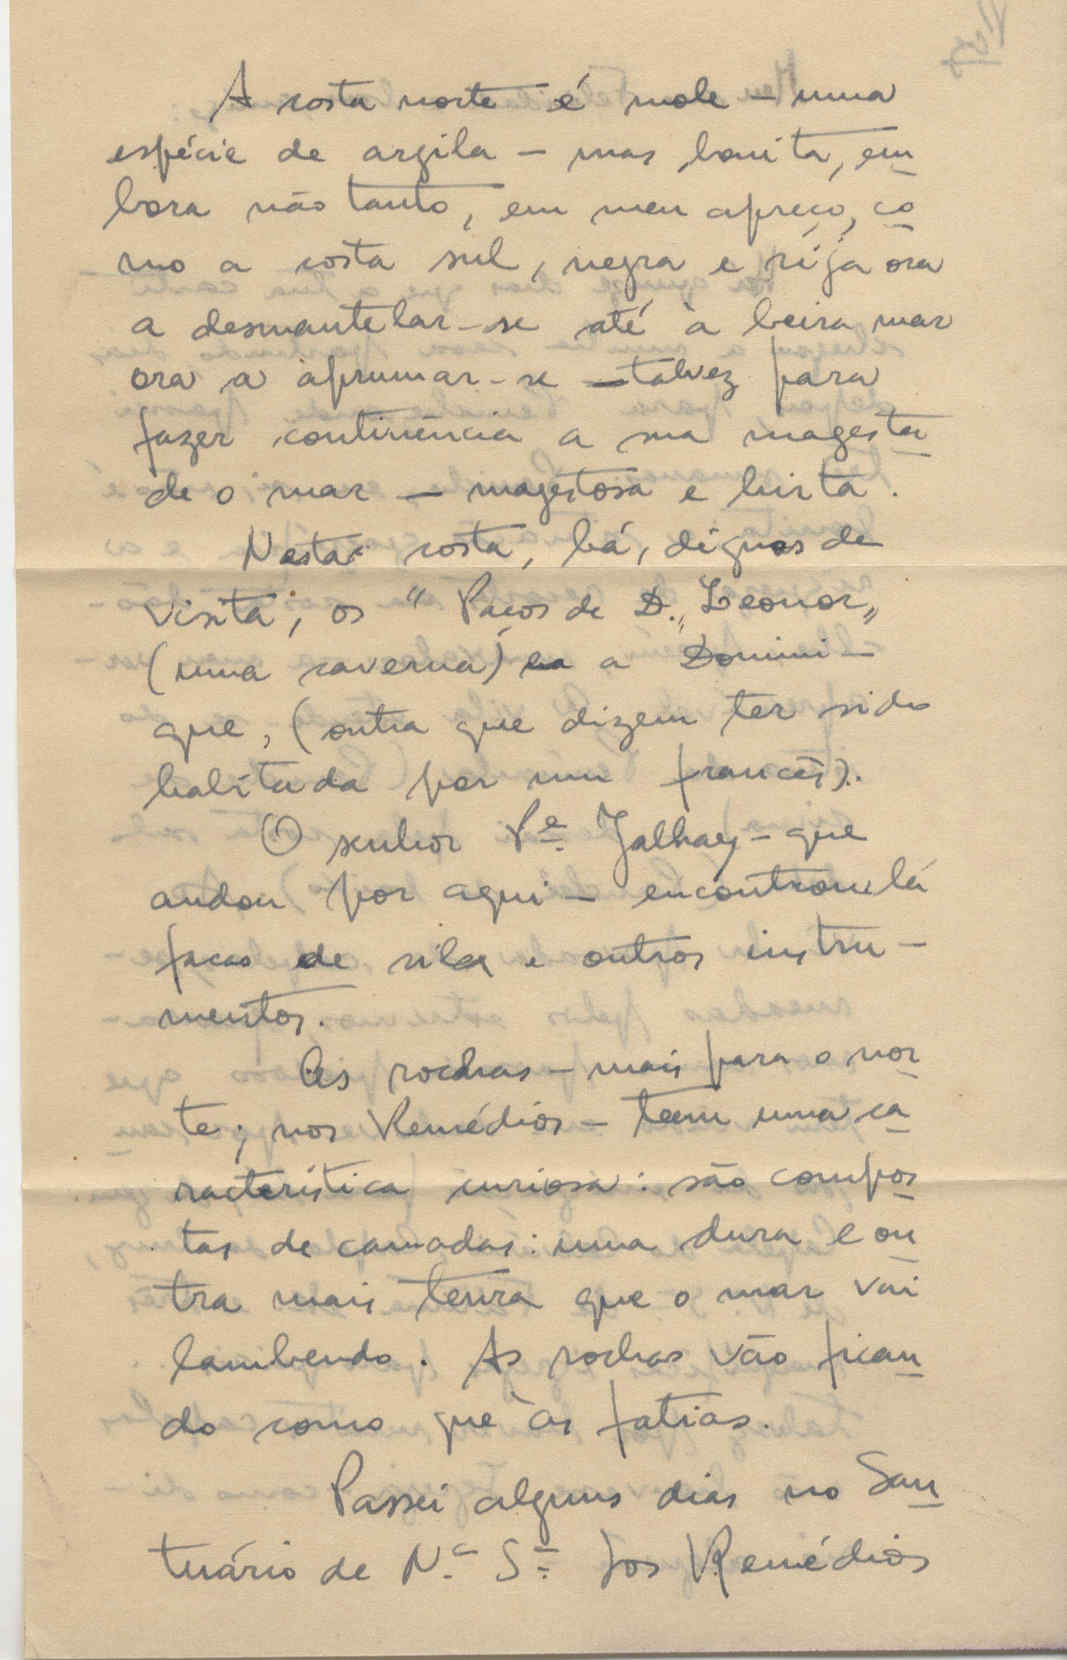 A costa norte é mole – uma
espécie de argila – mas bonita, em
bora não tanto, em meu apreço, co
mo a costa sul, negra e rija ora
a desmantelar-se até à beira mar
ora a aprumar-se – talvez para
fazer continência a sua magesta
de o mar – magestosa e hirta.
Nesta costa, há, dignos de
visita, os "Paços de D. "Leonor"
(uma caverna) e a Domini-
que, (outra que dizem ter sido
habitada por um francês).
O senhor Pe. Jalhay – que
andou por aqui – encontrou lá
facas de silex e outros instru-
mentos.
As rochas – mais para o nor
te, nos Remédios – teem uma ca
racterística curiosa: são compos
tas de camadas: uma dura e ou
tra mais tenra que o mar vai
lambendo. As rochas vão fican
do como que às fatias.
Passei alguns dias no San
tuário de Na. Sa. dos Remédios